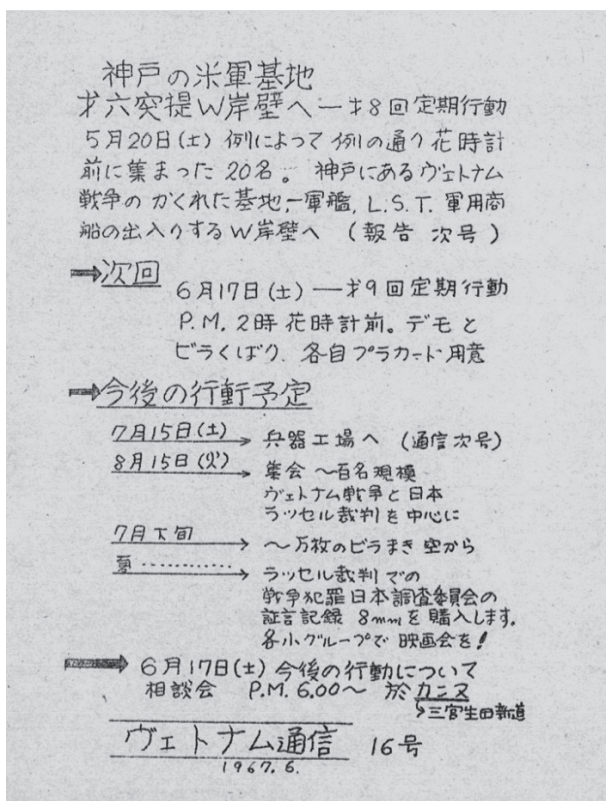 神戸の米軍基地
才六突提W岸壁へ—才8回定期行動
5月20日(土) 例によって例の通り花時計
前に集まった20名。 神戸にあるヴェトナム
戦争の かくれた基地,—軍艦, L.S.T. 軍用商
船の出入りするW岸壁へ (報告 次号)
➡次回
6月17日(土) —才9回定期行動
P.M. 2時 花時計前。デモと
ビラくばり. 各自プラカード用意
➡今後の行動予定
7月15日(土) → 兵器工場へ (通信次号)
8月15日(火) → 集会 〜百名規模
ヴェトナム戦争と日本
ラッセル裁判を中心に
7月下旬 → 〜万枚のビラまき 空から
夏………… → ラッセル裁判での
戦争犯罪日本調査委員会の
証言記録 8mmを購入します.
各小グループで映画会を!
➡ 6月17日(土) 今後の行動について
相談会 P.M. 6.00〜 於 カニヌ
↳三宮生田新道
ヴェトナム通信 16号
1967.6.